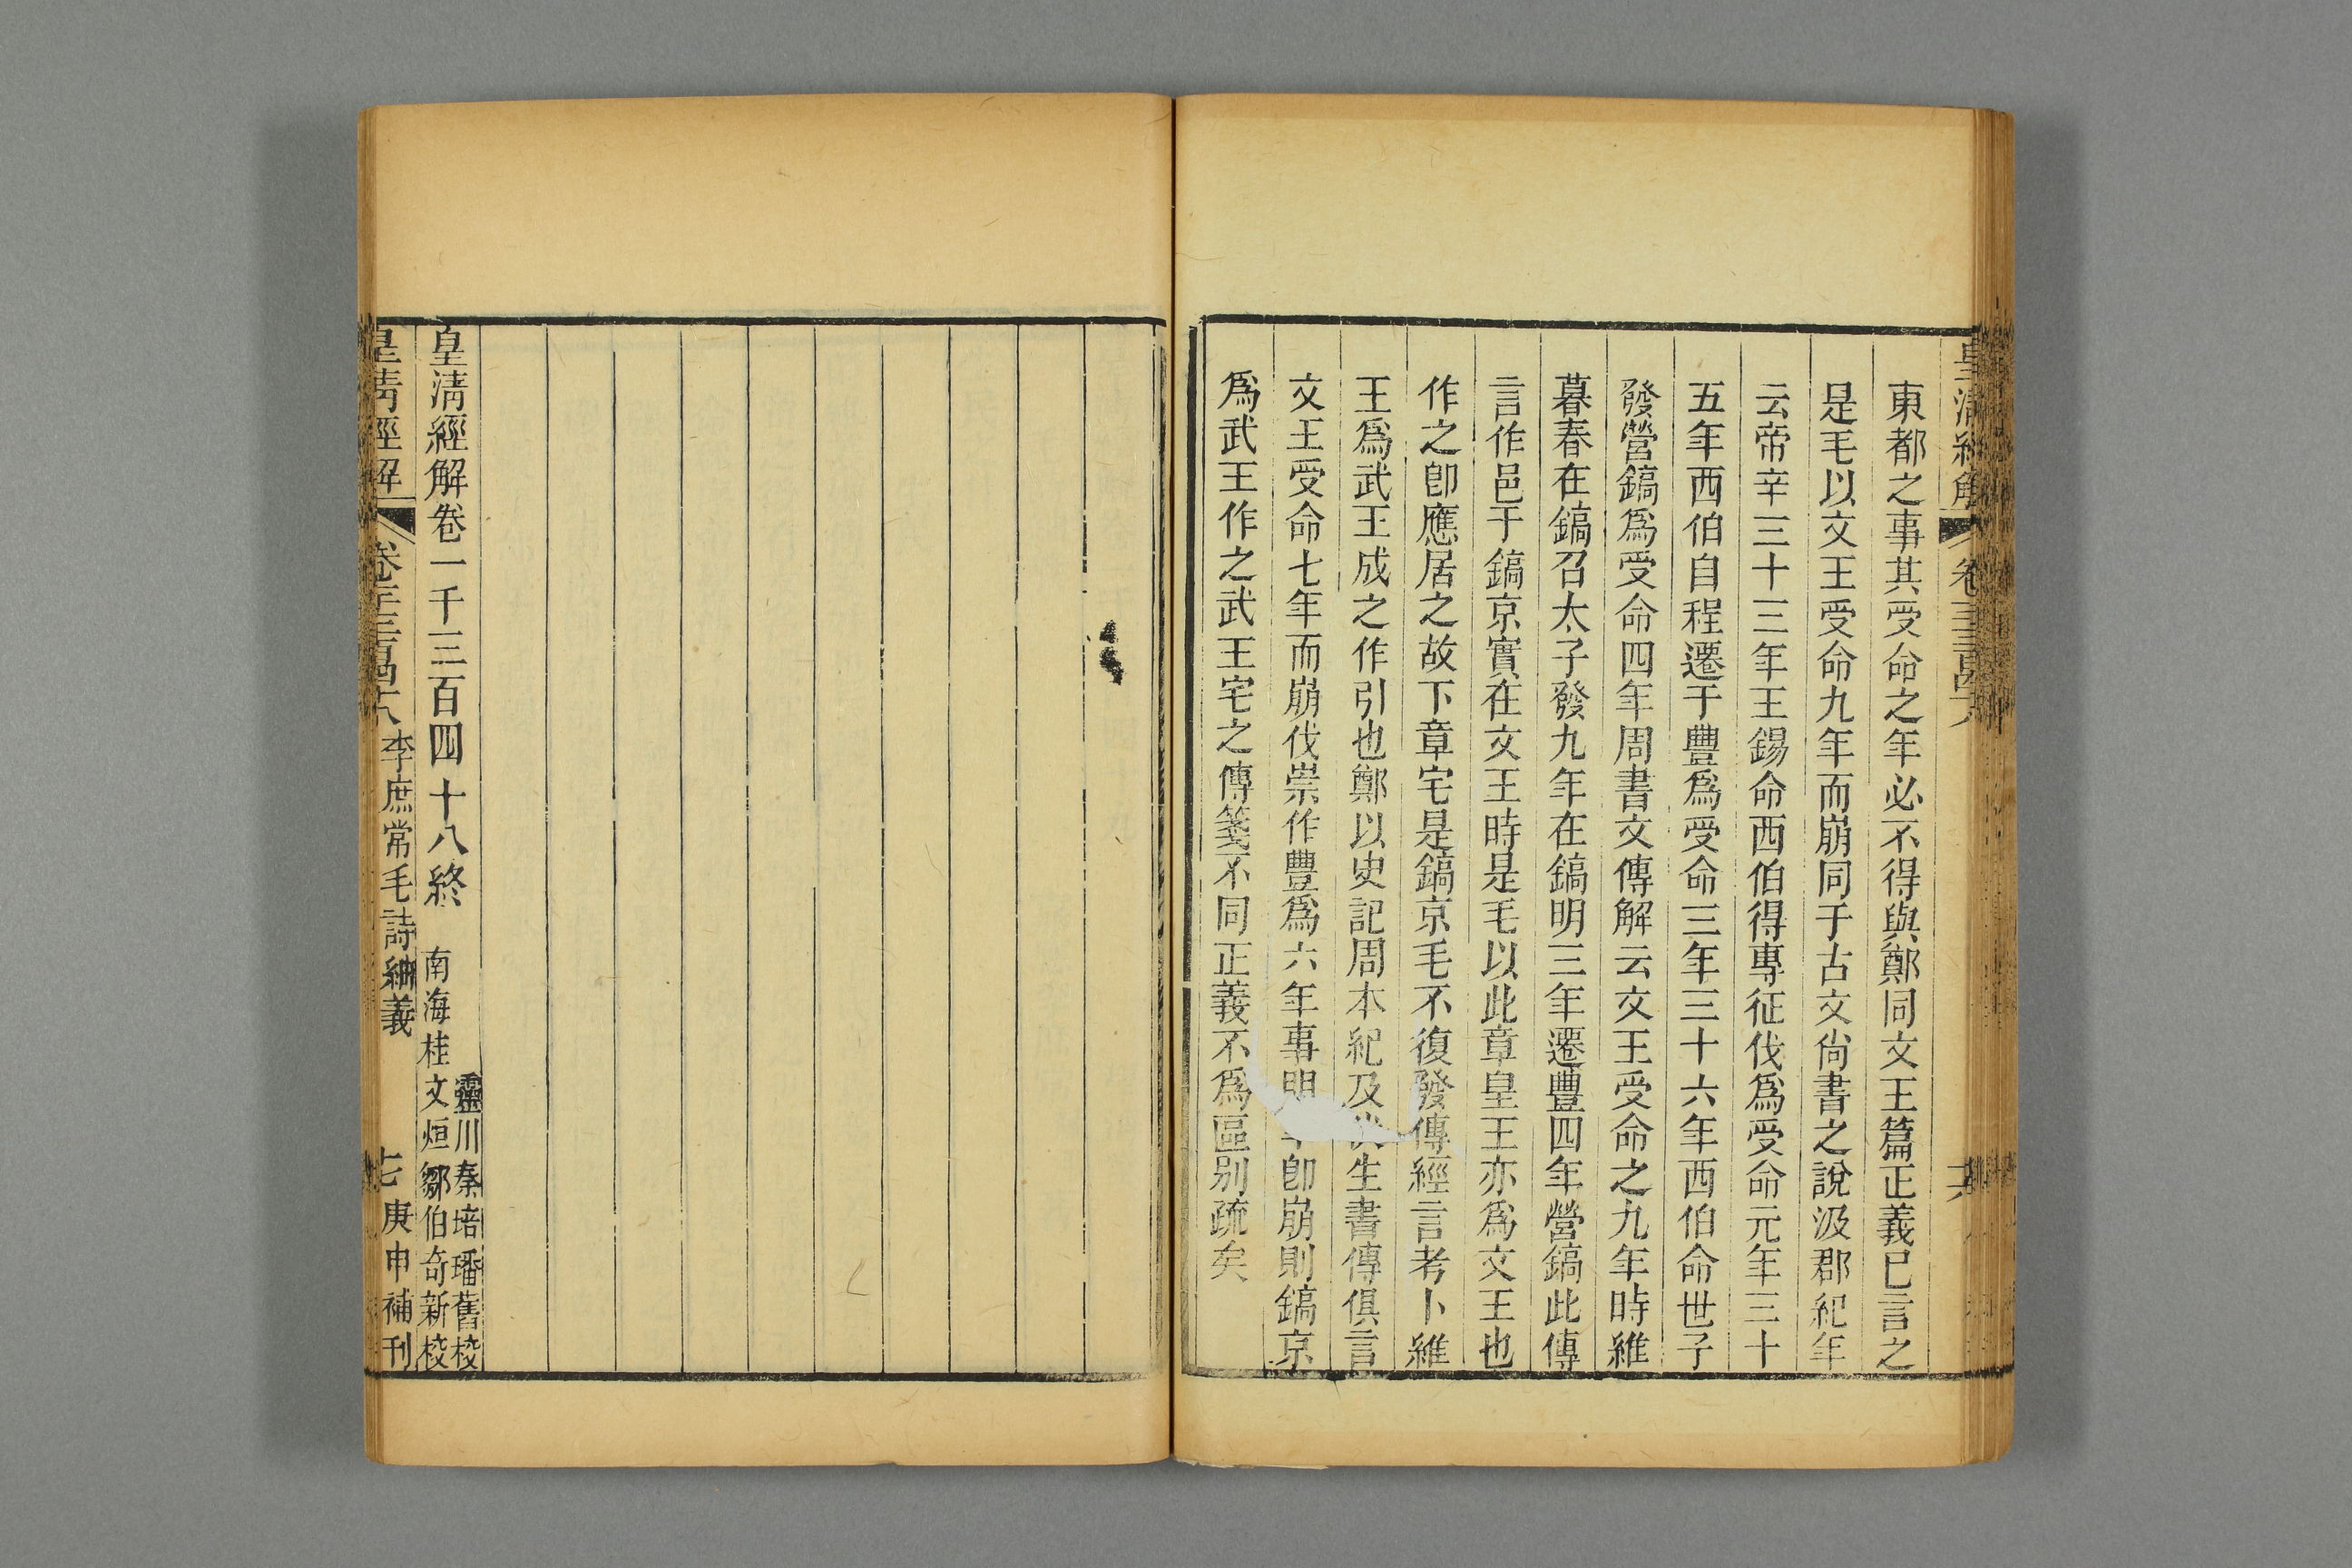 皇清經解
東都之事其受命之年必不得與鄭同文王篇正義已言之
是毛以文王受命九年而崩同于古文尙書之說汲郡紀年
云帝辛三十三年王錫命西伯得專征伐爲受命元年三十
五年西伯自程遷于豐爲受命三年三十六年西伯命世子
發營鎬爲受命四年周書文傳解云文王受命之九年時維
暮春在鎬召太子發九年在鎬明三年遷豐四年營鎬此傳
言作邑于鎬京實在文王時是毛以此章皇王亦爲文王也
作之卽應居之故下章宅是鎬京毛不復發傳經言考卜維
王爲武王成之作引也鄭以史記周本紀及生書傳俱言
文王受命七年而崩伐崇作豐爲六年事明卽崩則鎬京
爲武王作之武王宅之傳箋不同正義不爲區別疏矣
皇淸經解卷一千三百四十八終
靈川秦培璠舊校
南海桂文烜鄒伯奇新校
皇淸經解
李庶常毛詩紬義
庚申補刊